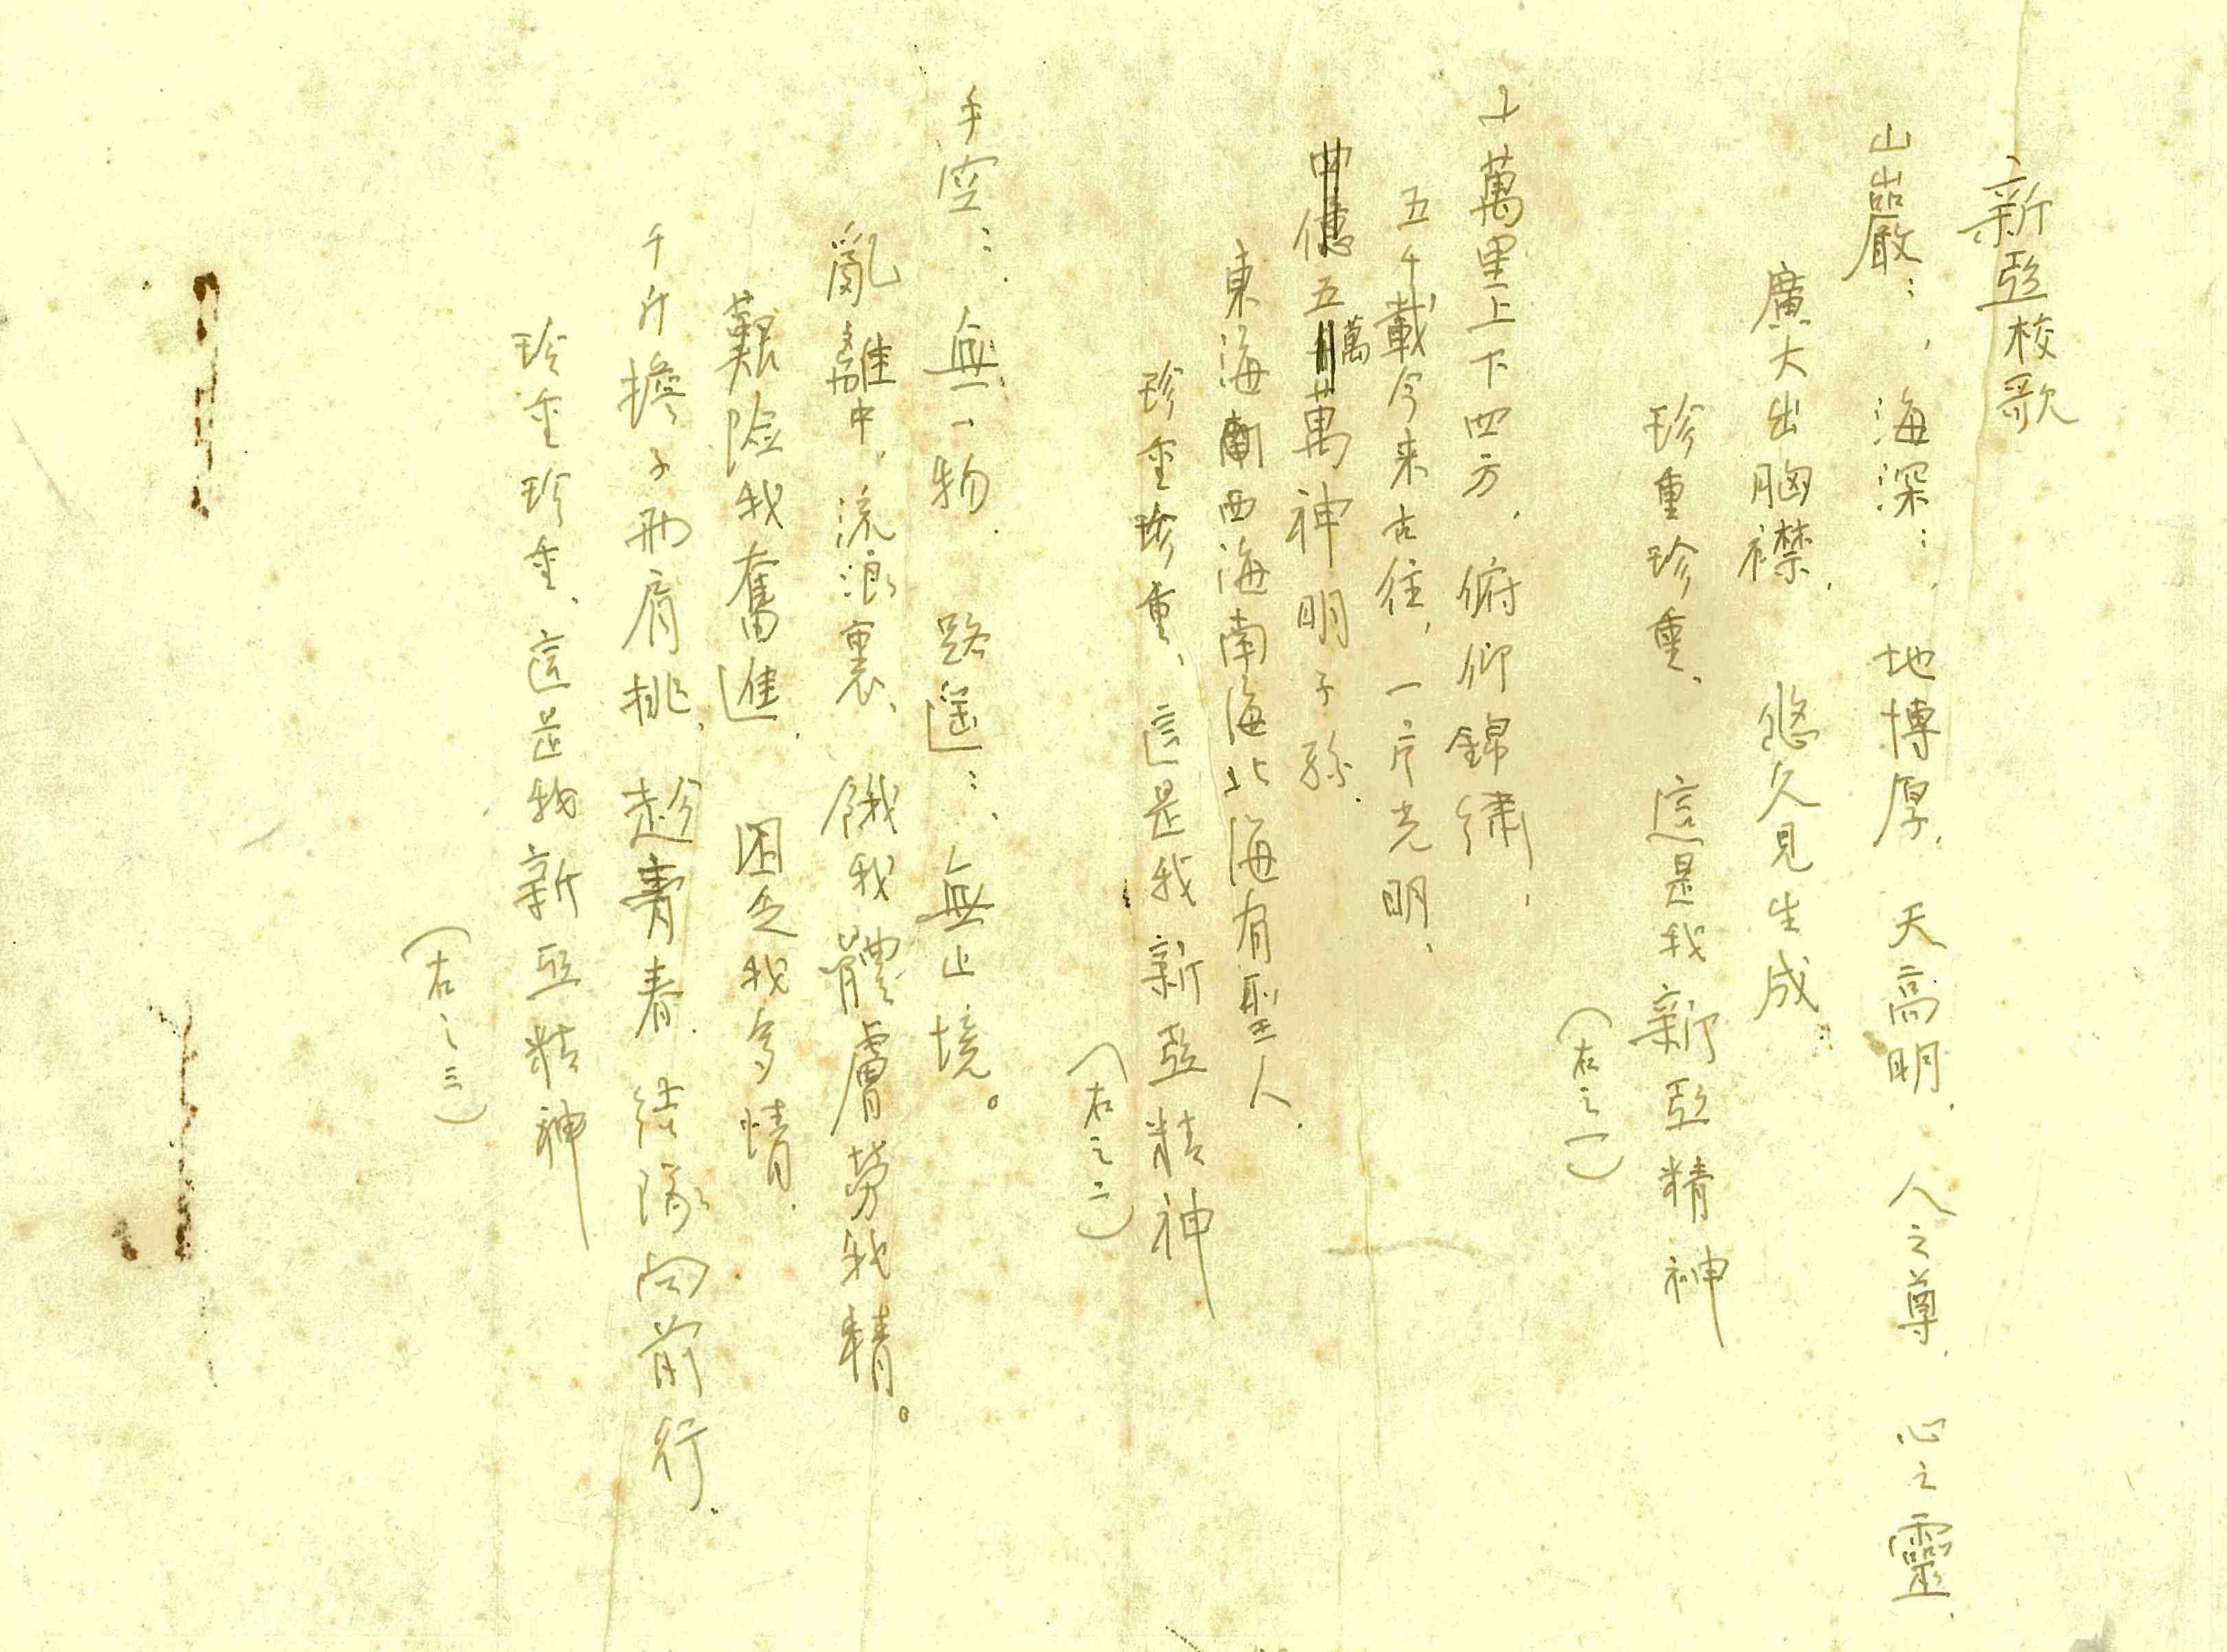 新亞校歌
山巖：, 海深：, 地博厚, 天高明, 人之尊, 心之靈
廣大出胸襟, 悠久見生成
珍重珍重、這是我新亞精神
(右之一)
十萬里上下四方, 俯仰錦繡,
五千載今来古往, 一片光明、
五萬萬神明子孫.
東海西海南海北海有聖人.
珍重珍重、這是我新亞精神
(右之二)
手空：, 無一物, 路遥：, 無止境。
亂離中, 流浪裏、餓我體膚勞我精。
艱險我奮進, 困乏我多情.
千斤擔子兩肩挑, 趁青春, 結隊向前行.
珍重珍重、這是我新亞精神
(右之三)